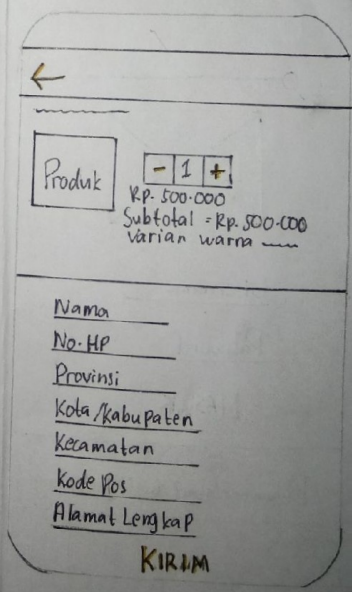 ←
Produk
- 1 +
Rp. 500.000
Subtotal = Rp. 500.000
Varian warna
Nama
No. HP
Provinsi
Kota/Kabupaten
Kecamatan
Kode Pos
Alamat Lengkap
KIRIM